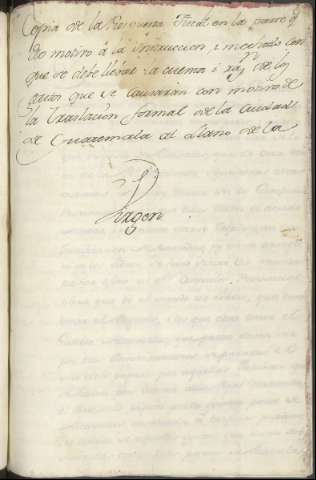 Copia de la Respuesta Fiscal en la parte q.
dio motivo á la Instruccion, i methodo con
que se debe llebar la cuenta i razn. de los
gastos que se causaran con motivo de
la traslacion formal de la Ciudad
de Guatemala al Llano de la
Virgen